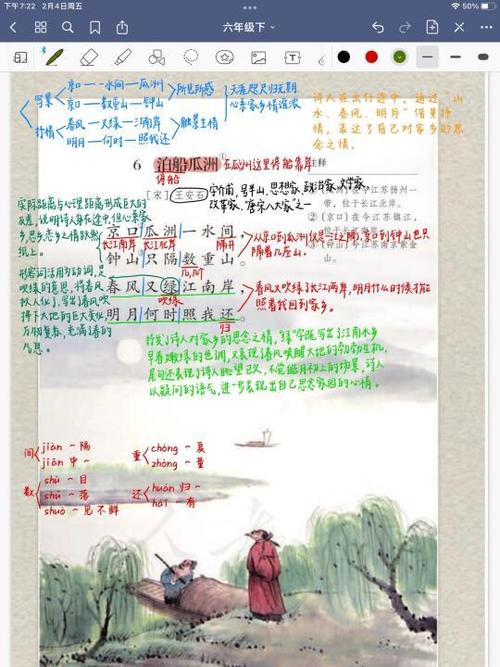 下午7:22 2月4日周五
50%
六年级下
写景
京口——一水间——瓜洲
京口——数重山——钟山
所见所感
抒情
春风——又绿——江南岸
明月——何时——照我还
触景生情
天涯咫尺归无期
心系家乡情谊浓
诗人在出仕途中，通过“山
水、春风、明月”借景抒
情，表达了自己对家乡的思
念之情。
6 泊船瓜洲
在瓜洲这里停船靠岸
停船
注释
[宋] 王安石
字介甫，号半山，思想家、政治家、文学家、
改革家，“唐宋八大家”之一
位于长江北岸。
② 〔京口〕在今江苏镇江，
③ 〔钟山〕今江苏南京紫金
山。
实际距离与心理距离形成巨大的
反差，说明诗人身在途中，但心系家
乡，思乡恋乡之情跃然
纸上。
京口瓜洲一水间，
长江南岸 长江北岸 隔开
钟山只隔数重山。
几阶
从京口到瓜洲仅是一江之隔，京口到钟山也只
隔着几座山。
形容词活用为动词，是
吹绿的意思，将春风
拟人化了，写出春风吹
拂下大地的巨大变化
万物复苏，充满春的
气息。
春风又绿江南岸，
吹绿
明月何时照我还？
归
春风又吹绿了长江两岸，明月什么时候才能
照着我回到家乡。
抒发了诗人对家乡的思念之情，“绿”字既写出了江南水乡
早春嫩绿的色调，又表现了春风唤醒大地的勃勃生机，
尾句还表现了诗人眺望已久，不觉皓月初上的场景，诗人
以疑问的语气，进一步表现出自己思念家园的心情。
间
jiàn ～ 隔
jiān 中 ～
数
shù ～ 目
shǔ ～ 落
shuò ～ 见不鲜
重
chóng ～ 复
zhòng ～ 量
还
huán 归 ～
hái ～ 有